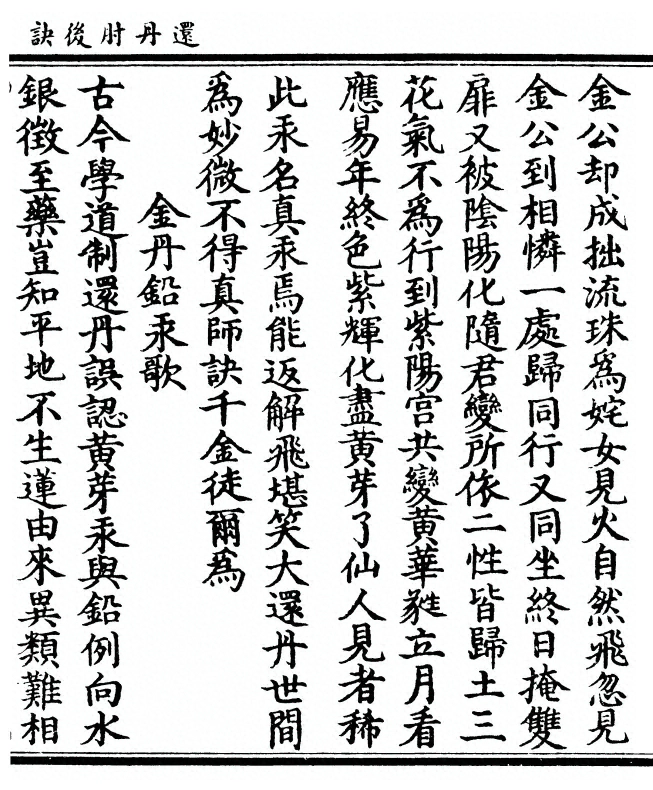 還丹肘後訣
金公却成拙流珠爲姹女見火自然飛忽見
金公到相憐一處歸同行又同坐終日掩雙
扉又被陰陽化隨君變所依二性皆歸土三
花氣不爲行到紫陽宫共變黄華蕤立月看
應易年終色紫輝化盡黄芽了仙人見者稀
此汞名真汞焉能返解飛堪笑大還丹世間
爲妙微不得真師訣千金徒爾爲
金丹鉛汞歌
古今學道制還丹誤認黄芽汞與鉛例向水
銀徵至藥豈知平地不生蓮由來異類難相